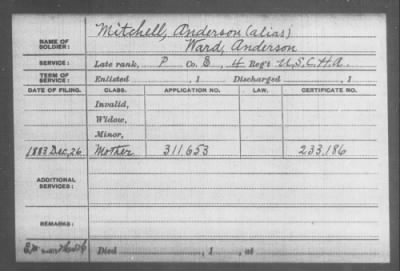 NAME OF SOLDIER: Mitchell, Anderson (alias)
Ward, Anderson
SERVICE: Late rank, P Co. B, 4 Reg't U.S.C.H.A.
TERM OF SERVICE: Enlisted , 1 Discharged , 1
DATE OF FILING. CLASS. APPLICATION NO. LAW. CERTIFICATE NO.
Invalid,
Widow,
Minor,
1883 Dec, 26 Mother 311,653 233,186
ADDITIONAL SERVICES:
REMARKS:
Died , 1 , at